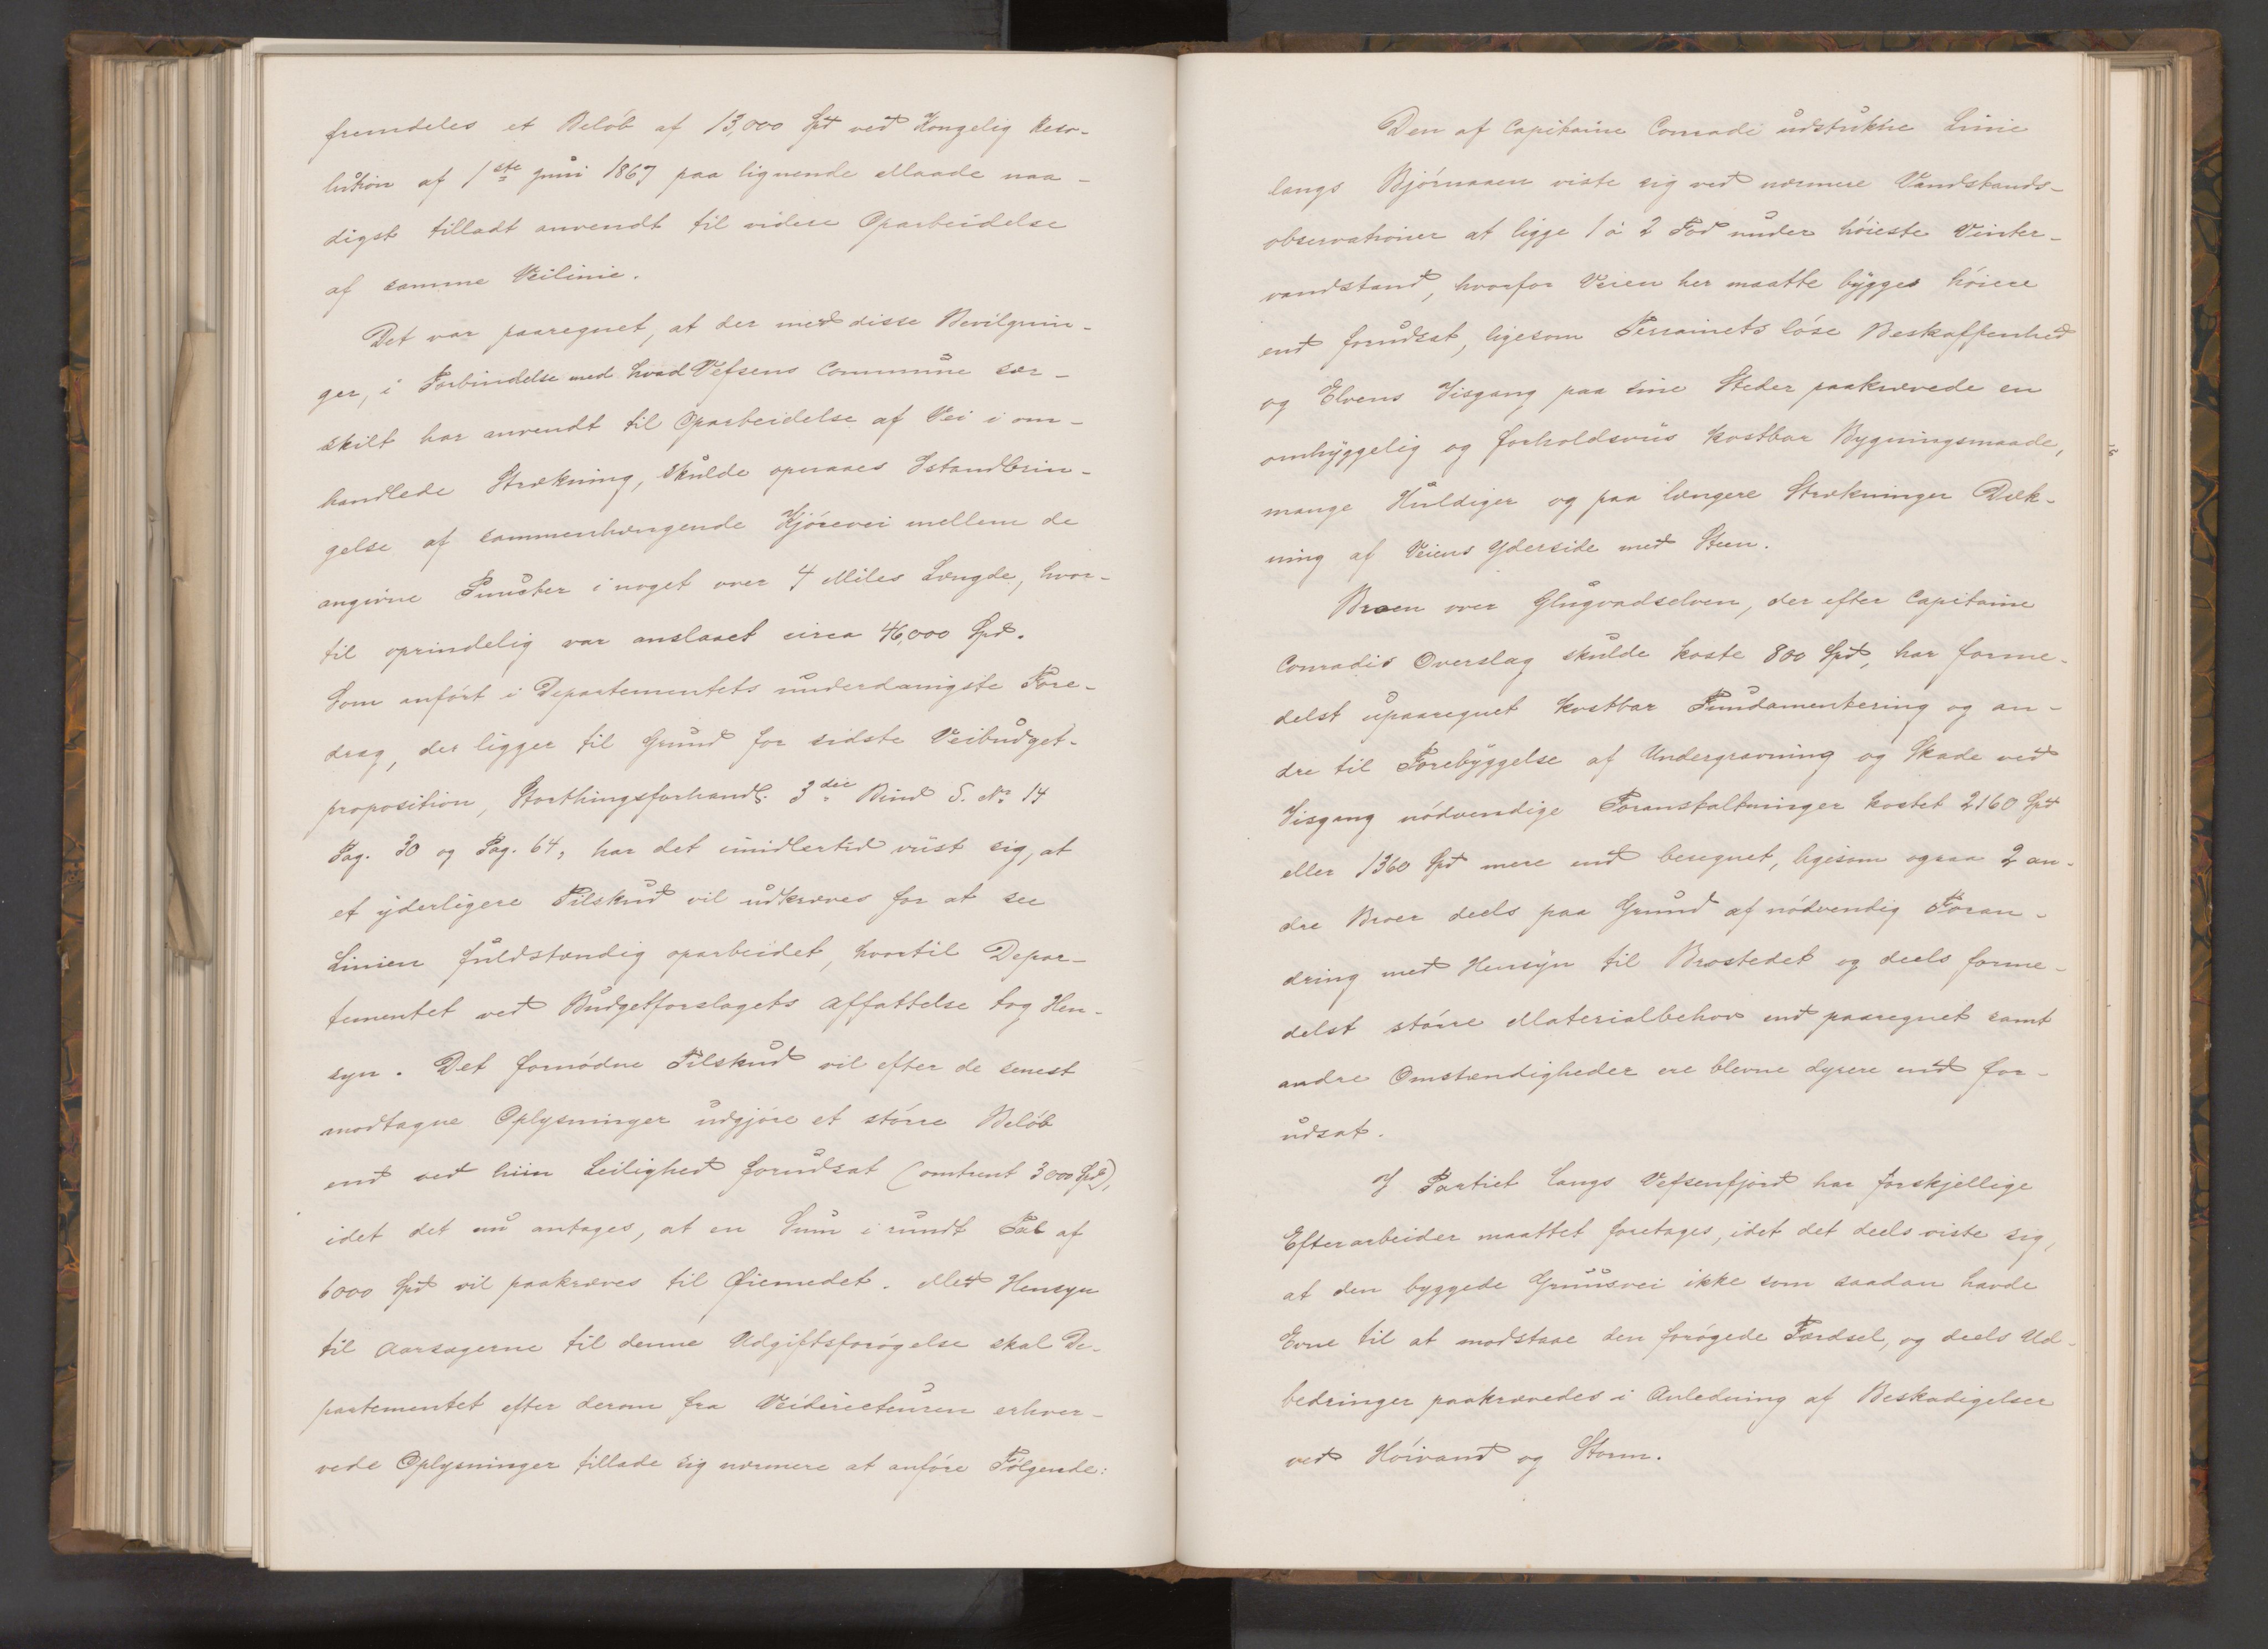 fremdeles et Beløb af 13,000 Spd ved Kongelig Reso-
lution af 1ste Juni 1867 paa lignende Maade naa-
digst tilladt anvendt til videre Oparbeidelse
af samme Veilinie.
Det var paaregnet, at der med disse Bevilgnin-
ger, i Forbindelse med hvad Vefsens Commune sær-
skilt har anvendt til Oparbeidelse af Vei i om-
handlede Strækning, skulde opnaaes Istandbrin-
gelse af sammenhængende Kjørevei mellem de
angivne Puncter i noget over 4 Miles Længde, hvor-
til oprindelig var anslaaet circa 46,000 Spd.
Som anført i Departementets underdanigste Fore-
drag, der ligger til Grund for sidste Veibudget-
proposition, Storthingsforhandl. 3die Bind S. No 14
Pag. 30 og Pag. 64, har det imidlertid viist sig, at
et yderligere Tilskud vil udkræves for at see
Linien fuldstændig oparbeidet, hvortil Depar-
tementet ved Budgetforslagets Affattelse tog Hen-
syn. Det fornødne Tilskud vil efter de senest
modtagne Oplysninger udgjøre et større Beløb
end ved hiin Leilighed forudsat (omtrent 3000 Spd),
idet det nu antages, at en Sum i rundt Tal af
6000 Spd vil paakræves til Øiemedet. Med Hensyn
til Aarsagerne til denne Udgiftsforøgelse skal De-
partementet efter derom fra Veidirecteuren erhver-
vede Oplysninger tillade sig nærmere at anføre Følgende:
Den af Capitaine Conradi udstukne Linie
langs Bjørnaaen viste sig ved nærmere Vandstands-
observationer at ligge 1 à 2 Fod under høieste Vinter-
vandstand, hvorfor Veien her maatte bygges høiere
end forudsat, ligesom Terrainets løse Beskaffenhed
og Elvens Iisgang paa sine Steder paakrævede en
omhyggelig og forholdsviis kostbar Bygningsmaade,
mange Huldiger og paa længere Strækninger Dæk-
ning af Veiens Yderside med Steen.
Broen over Glugvadselven, der efter Capitaine
Conradis Overslag skulde koste 800 Spd, har forme-
delst upaaregnet kostbar Fundamentering og an-
dre til Forebyggelse af Undergravning og Skade ved
Iisgang nødvendige Foranstaltninger kostet 2160 Spd
eller 1360 Spd mere end beregnet, ligesom ogsaa 2 an-
dre Broer deels paa Grund af nødvendig Foran-
dring med Hensyn til Brostedet og deels forme-
delst større Materialbehov end paaregnet samt
andre Omstændigheder ere blevne dyrere end for-
udsat.
I Partiet langs Vefsenfjord har forskjellige
Efterarbeider maattet foretages, idet det deels viste sig,
at den byggede Gruusvei ikke som saadan havde
Evne til at modstaae den forøgede Færdsel, og deels Ud-
bedringer paakrævedes i Anledning af Beskadigelser
ved Høivand og Storm.